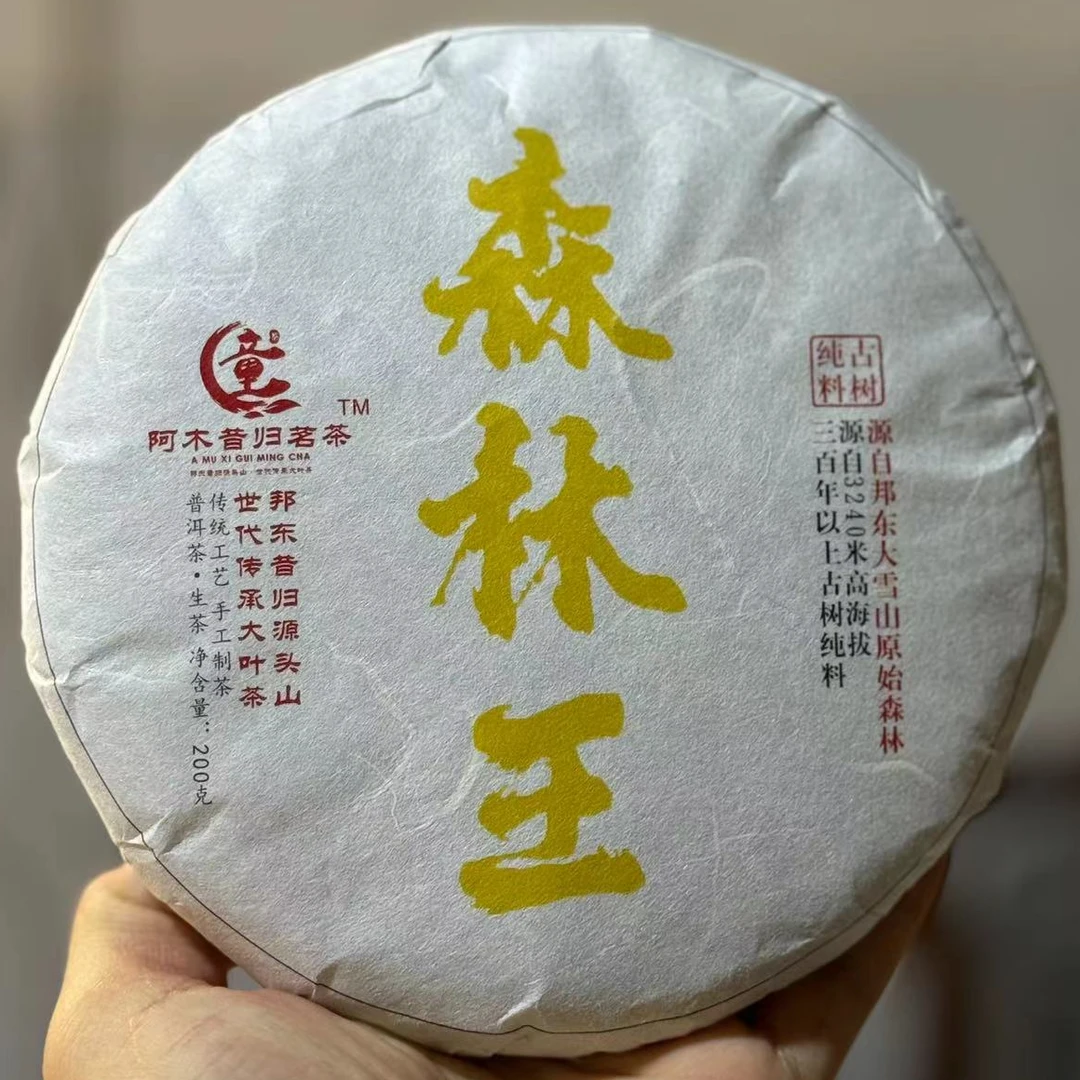 森林王
童
TM
阿木昔归茗茶
A MU XI GUI MING CHA
邦东昔归源头山
世代传承大叶茶
传统工艺 手工制茶
普洱茶·生茶 净含量：200克
古树
纯料
源自邦东大雪山原始森林
源自3240米高海拔
三百年以上古树纯料